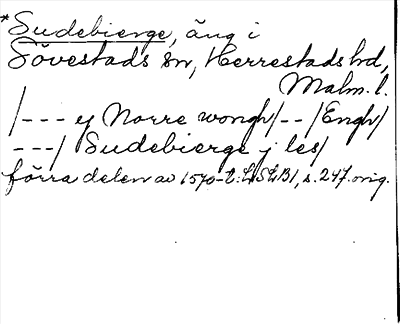 *Sudebierge, äng i
Sövestads sn, Herrestads hd,
Malm. l.
/--- ej Norre wongh/--/Engh/
---/ Sudebierge j les/
förra delen av 1570-t: LSLB1, s. 247. orig.